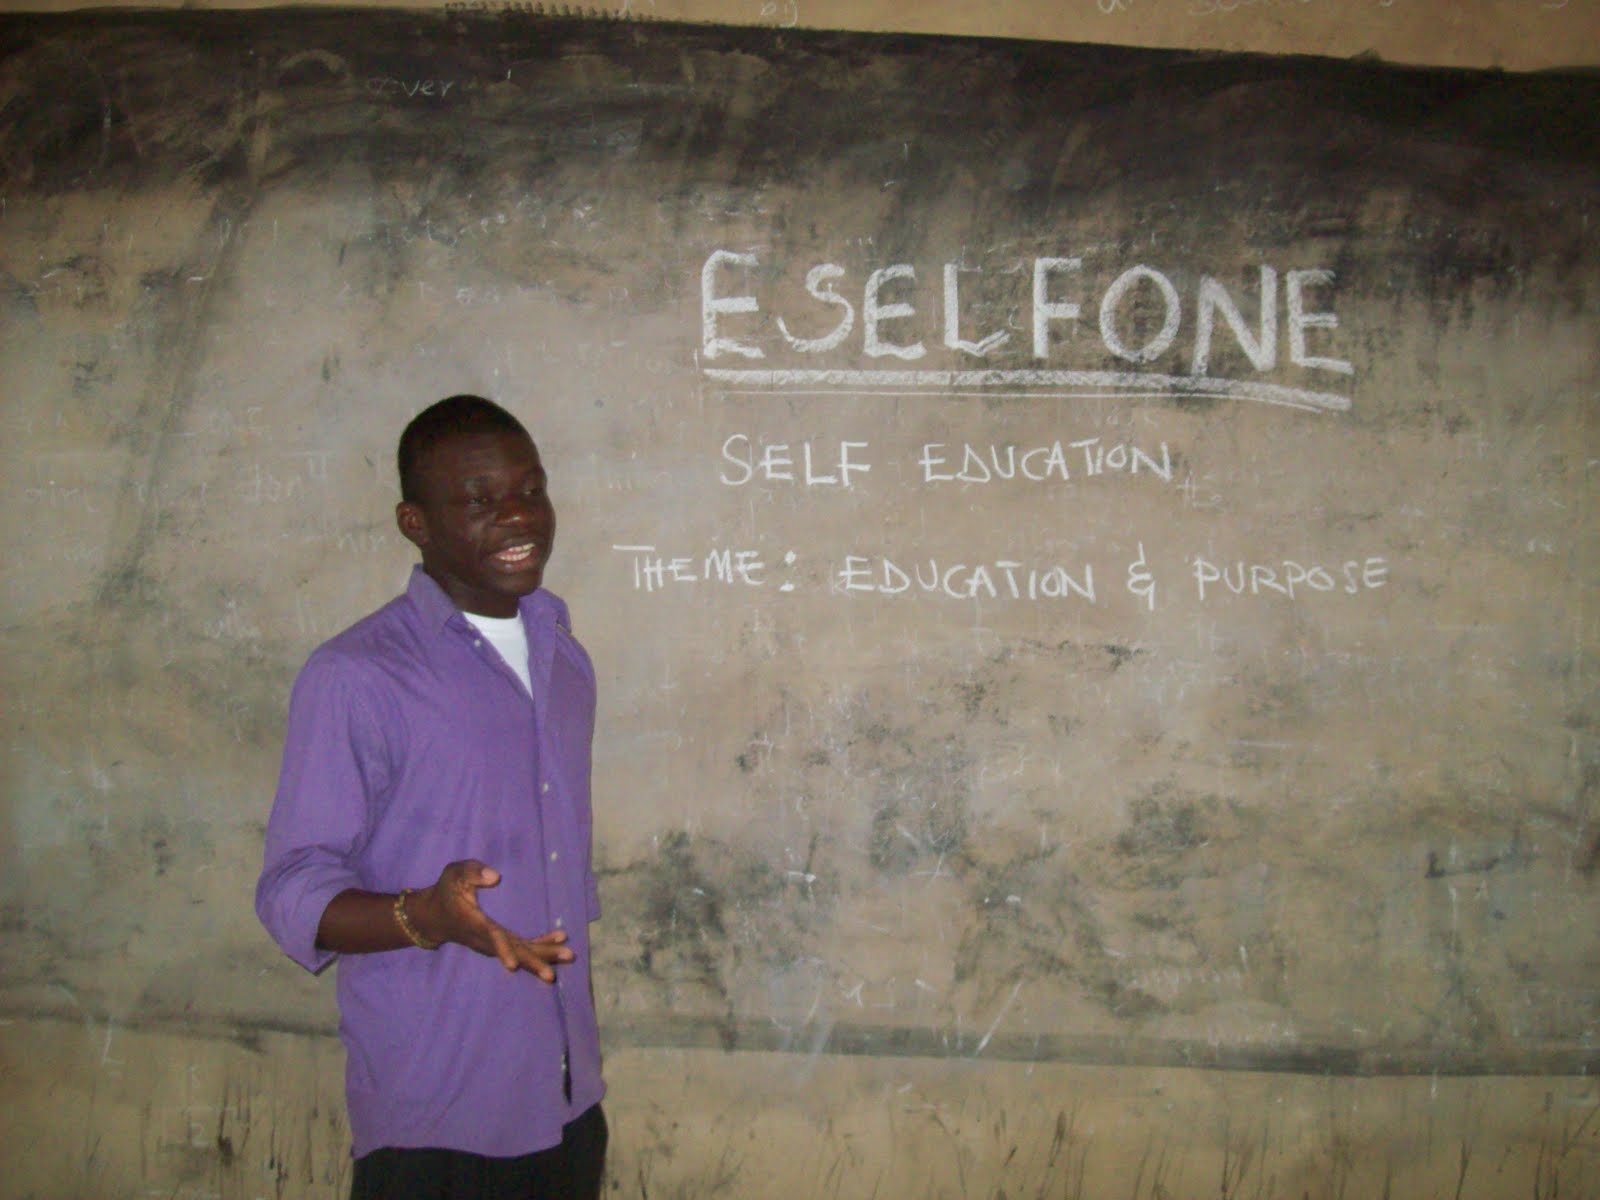 over
ESELFONE
SELF EDUCATION
THEME: EDUCATION & PURPOSE